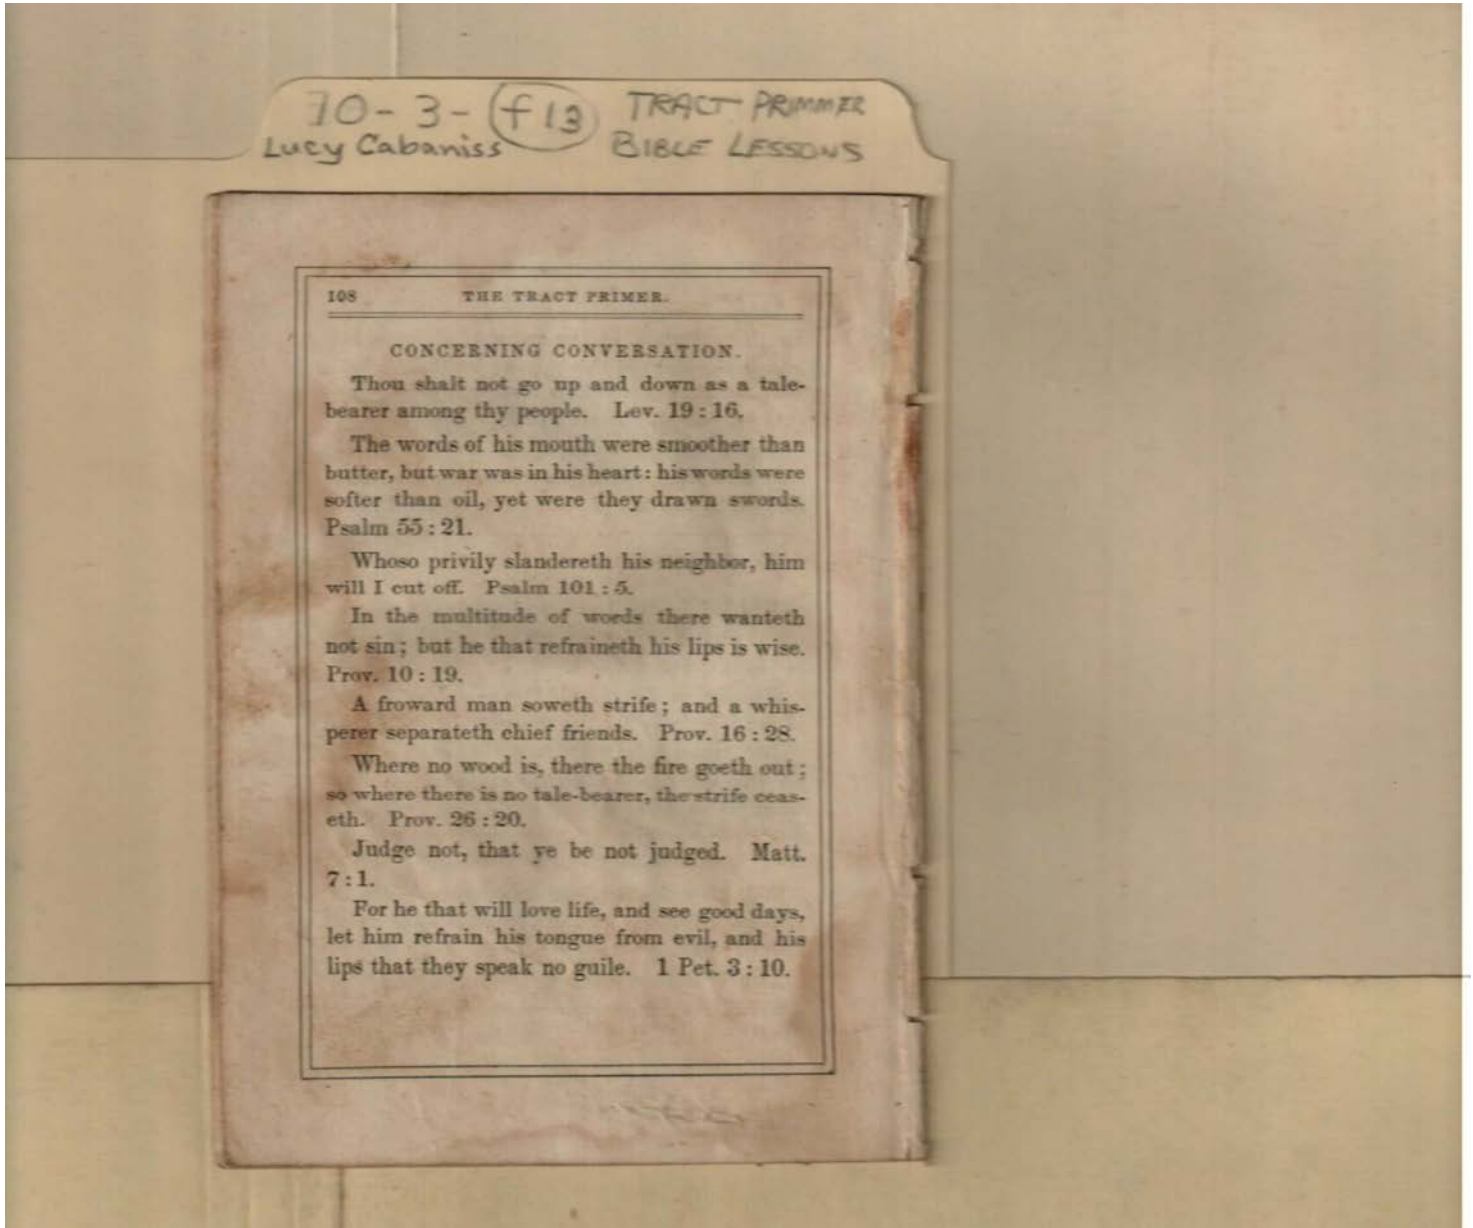 70-3-f13 TRACT PRIMMER
Lucy Cabaniss BIBLE LESSONS
108 THE TRACT PRIMER.
CONCERNING CONVERSATION.
Thou shalt not go up and down as a tale-
bearer among thy people. Lev. 19 : 16.
The words of his mouth were smoother than
butter, but war was in his heart: his words were
softer than oil, yet were they drawn swords.
Psalm 55 : 21.
Whoso privily slandereth his neighbor, him
will I cut off. Psalm 101 : 5.
In the multitude of words there wanteth
not sin; but he that refraineth his lips is wise.
Prov. 10 : 19.
A froward man soweth strife; and a whis-
perer separateth chief friends. Prov. 16 : 28.
Where no wood is, there the fire goeth out;
so where there is no tale-bearer, the strife ceas-
eth. Prov. 26 : 20.
Judge not, that ye be not judged. Matt.
7 : 1.
For he that will love life, and see good days,
let him refrain his tongue from evil, and his
lips that they speak no guile. 1 Pet. 3 : 10.